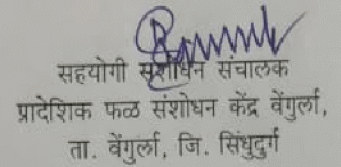 सहयोगी संशोधन संचालक
प्रादेशिक फळ संशोधन केंद्र वेंगुर्ला,
ता. वेंगुर्ला, जि. सिंधुदुर्ग